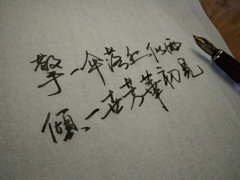 擎一伞落红化雨
倾一世芳华初见